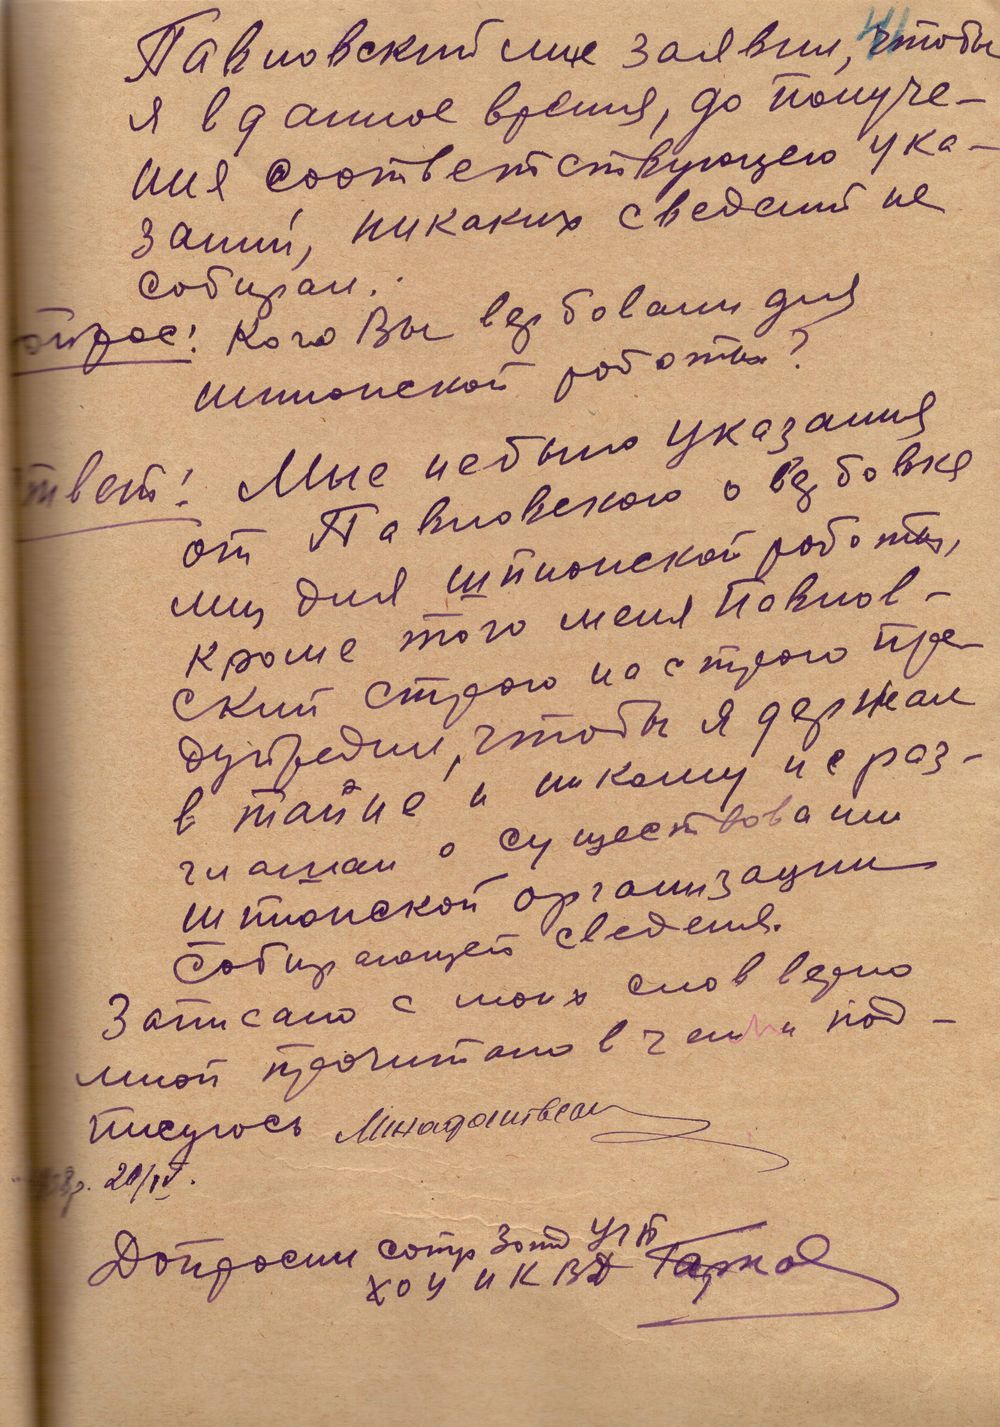 41
Павловский мне заявил, чтобы
я в данное время, до получе-
ния соответствующего ука-
заний, никаких сведений не
собирал.
опрос: Кого Вы вербовали для
шпионской роботы?
твет: Мне небыло указания
от Павловского о вербовке
лиц для шпионской роботы,
кроме того меня Павлов-
ский строго на строго пре-
дупредил, чтобы я держал
в тайне и никому не раз-
глашал о существовании
шпионской организации
собирающей сведения.
Записано с моих слов верно
мной прочитано в чем и под-
писуюсь
20/IV.
Допросил сотр 3 отд УГБ
ХОУ НКВД